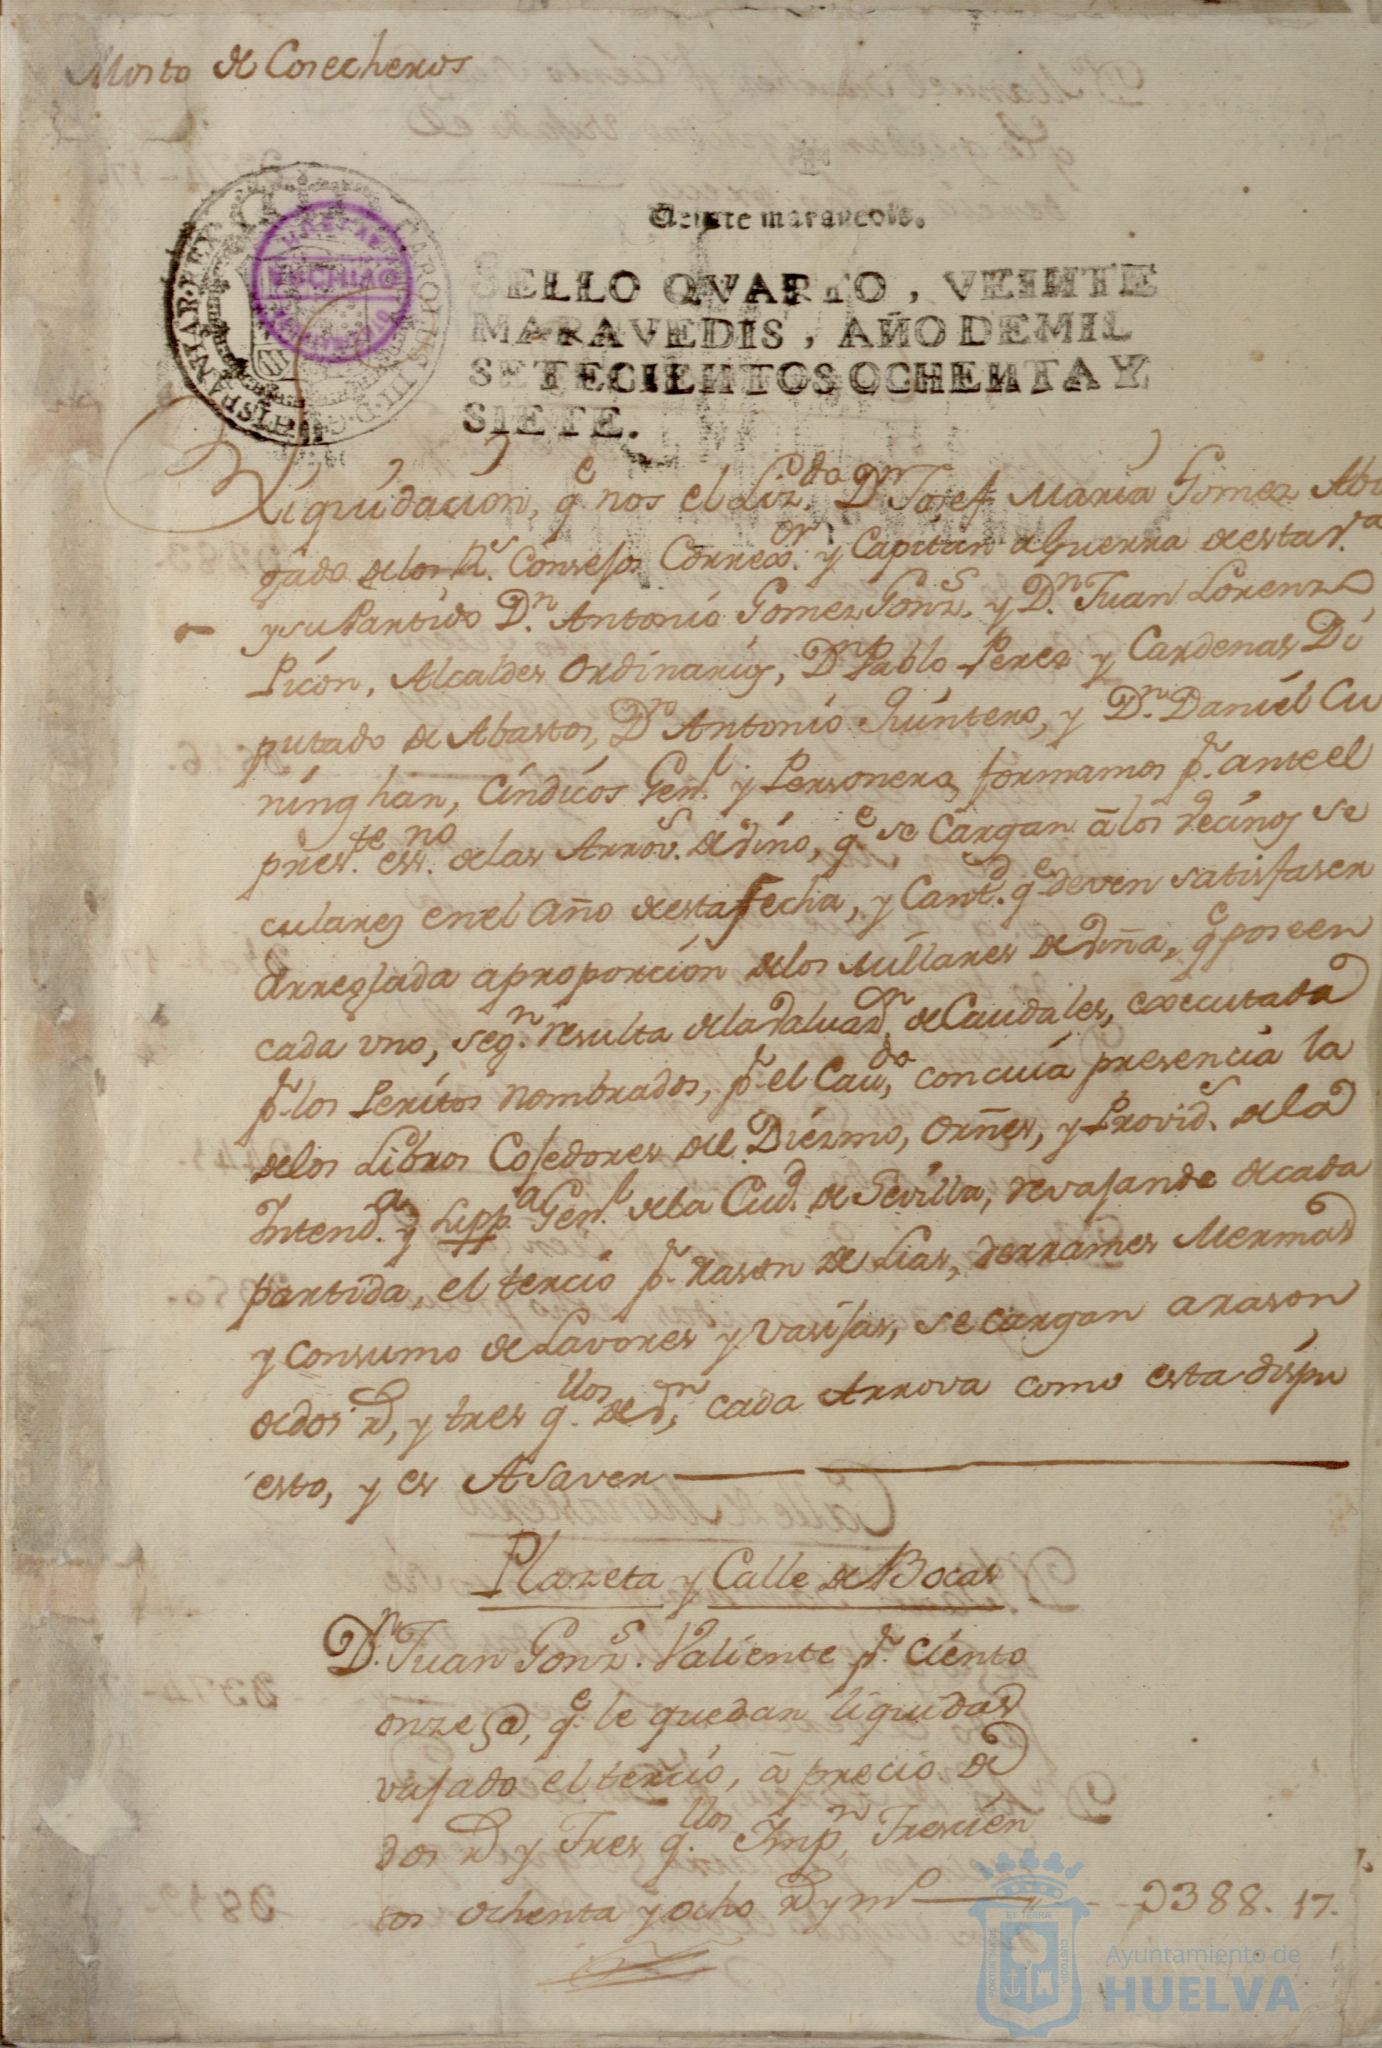 Mosto de Cosecheros
Veinte maravedis.
SELLO QVARTO, VEINTE
MARAVEDIS, AÑO DE MIL
SETECIENTOS OCHENTA Y
SIETE.
CAROLUS III D. G. HISPANIAR. REX
ARCHIVO
Liquidacion, qe. nos el Lizdo. Dn. Josef Maria Gomez Abo
gado de los Rs. Consejos Corregor. y Capitan aGuerra de esta Va.
y su Partido Dn. Antonio Gomez Gonzs. y Dn. Juan Lorenzo
Picon, Alcaldes Ordinarios, Dn. Pablo Perez y Cardenas Di
putado de Abastos, Dn. Antonio Quintero, y Dn. Daniel Cu
ninghan, Cindicos Genl. y Personero, formamos pr. ante el
preste. essno. de las Arrovs. de vino, qe. se Cargan â los vecinos se
culares en el Año de esta Fecha, y Cantd. qe. deven satisfaser
arreglada a proporcion de los millares de viña, qe. poseen
cada uno, segn. resulta de la Valuazn. de Caudales, executada
pr. los Peritos nombrados, pr. el Cavdo. con cuia presencia la
de los Libros Cojedores del Diezmo, Orñes, y Provids. de la
Intenda. y Supp.a Genl. de la Ciud. de Sevilla, revajando de cada
partida, el tercio pr. rason de Lias, derrames Mermas
y consumo de Lavores y Vasijas, se cargan a rason
de dos rs, y tres qllos. de vn, cada Arrova como esta dispu
esto, y es A saver
Plazeta y Calle de Bocas
Dn. Juan Gonzs. Valiente pr. ciento
onze @, qe. le quedan liquidas
vajado el tercio, â precio de
dos rs y Tres qllos. Impn. Trescien
tos ochenta y ocho rs y mo 388. 17.
Ayuntamiento de
HUELVA